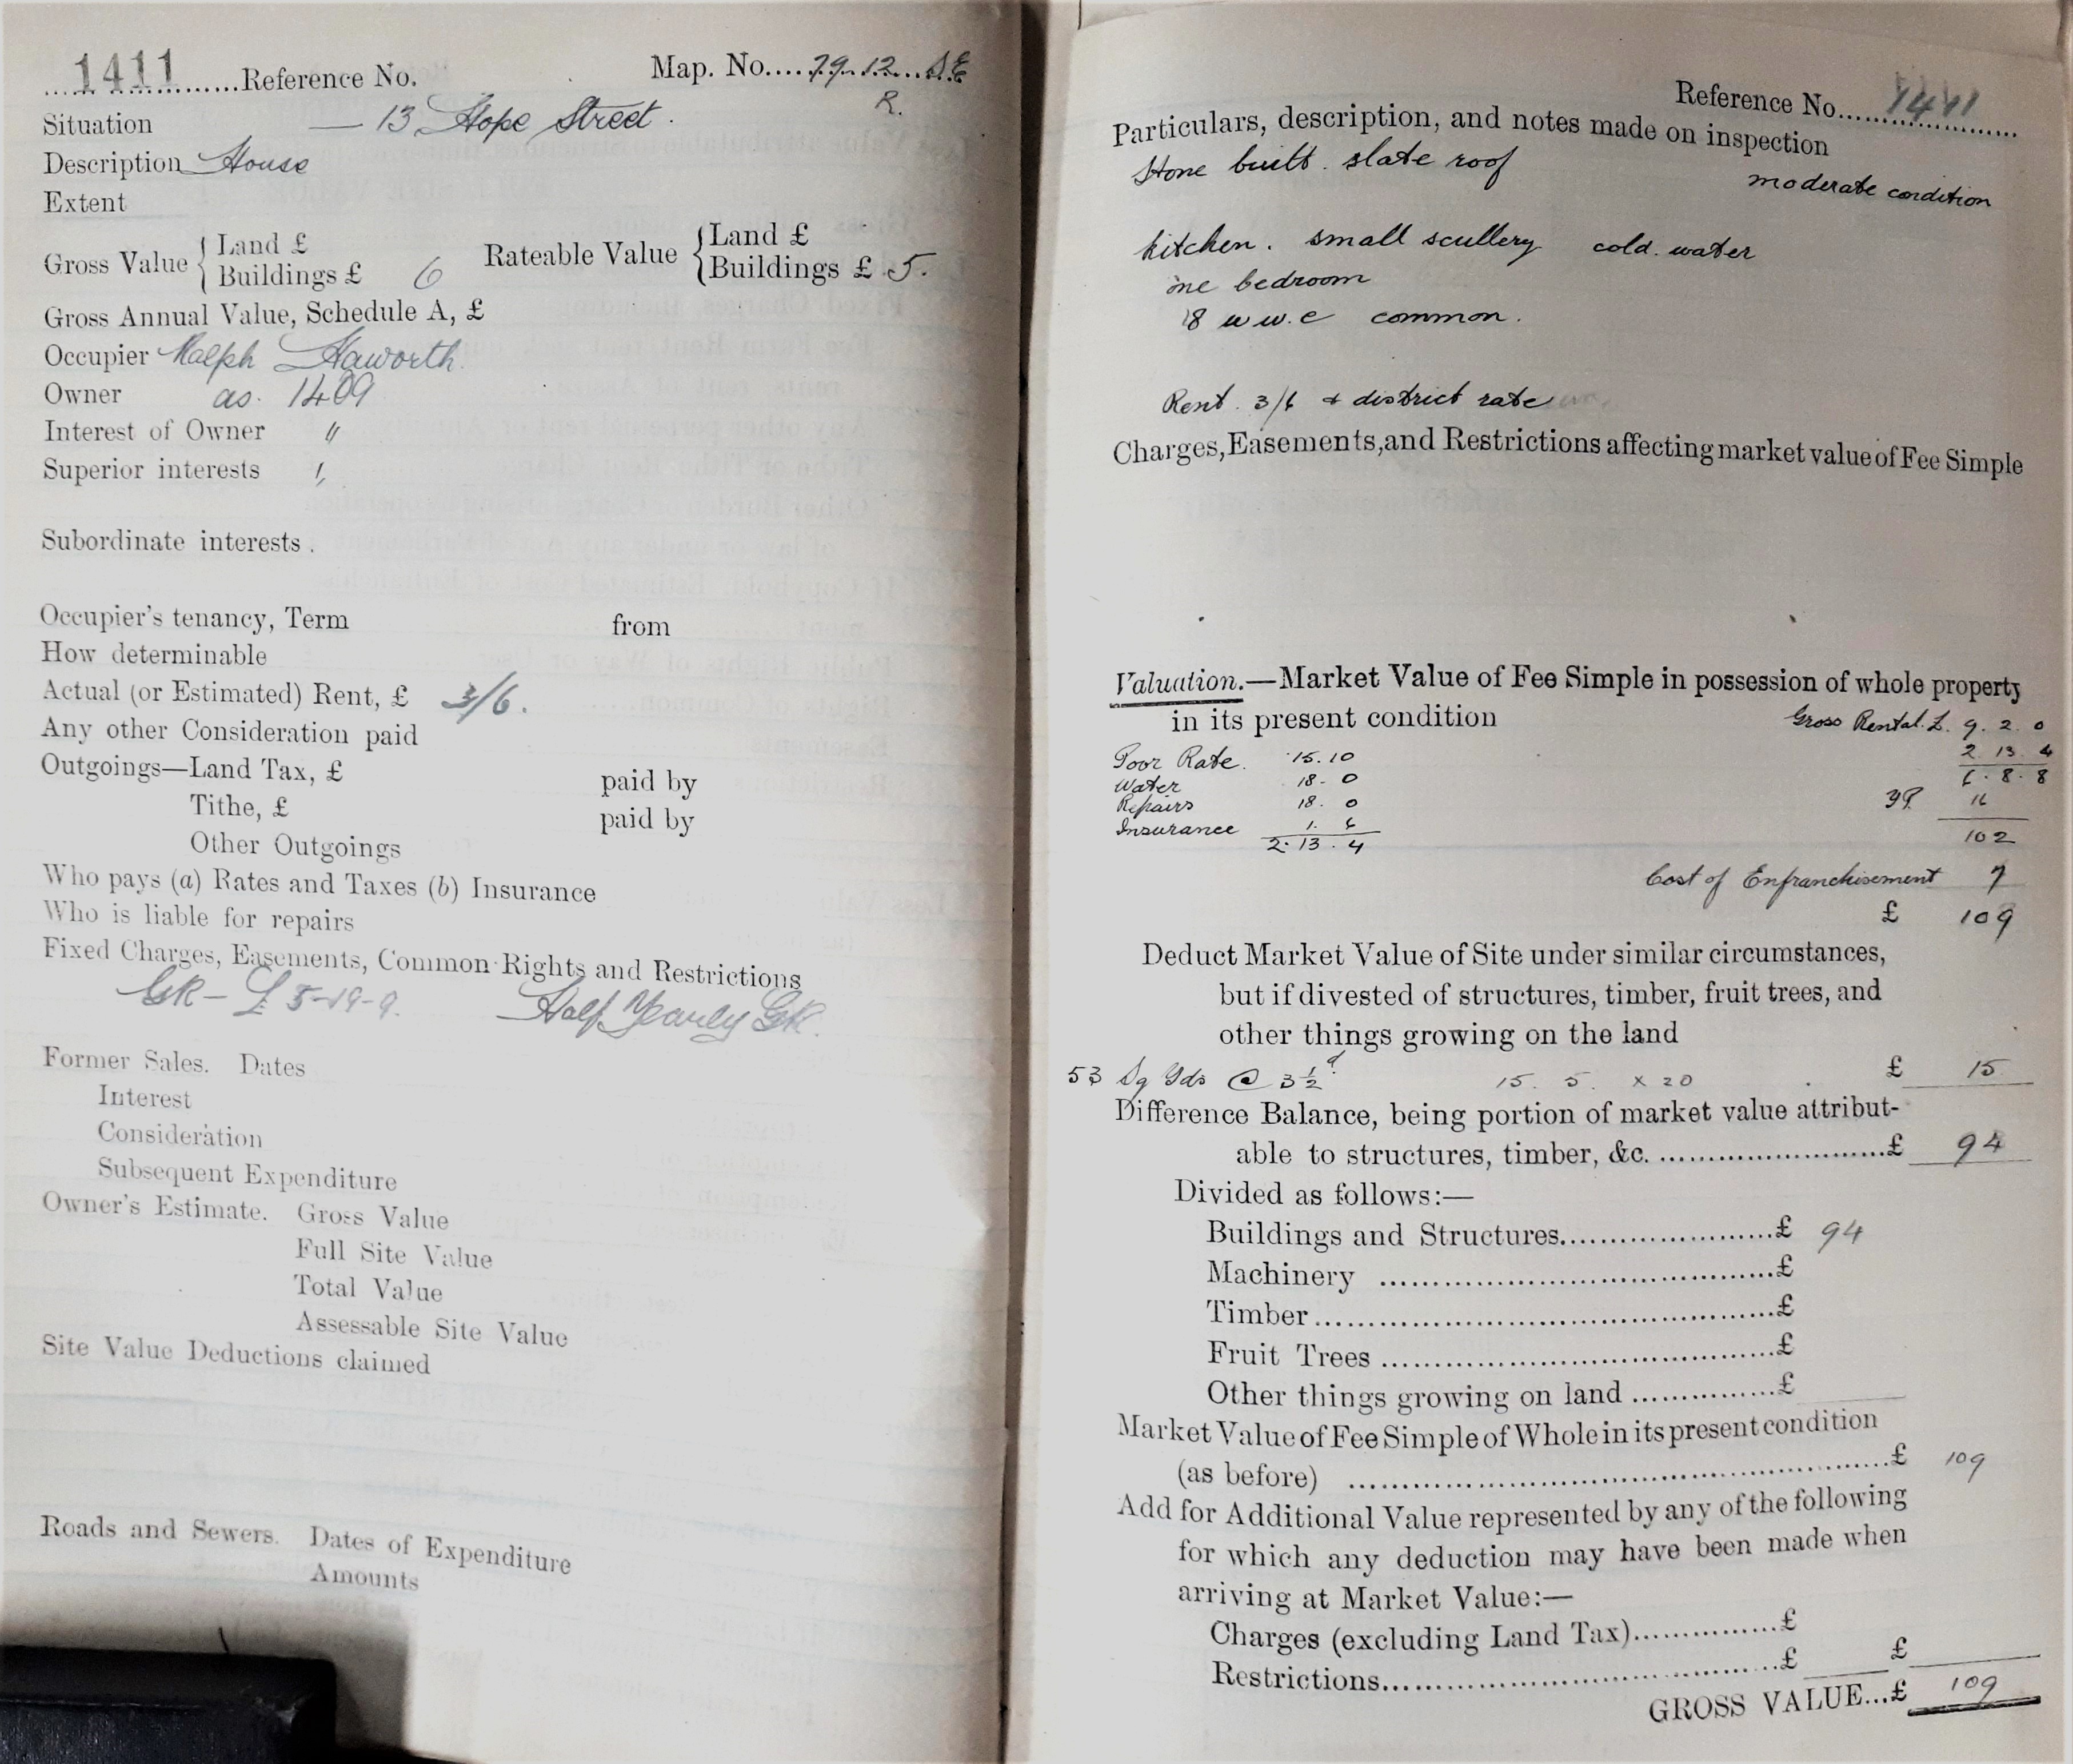 1411 Reference No. Map. No. 79.12. SE
R.
Situation — 13 Hope Street.
Description House
Extent
Gross Value { Land £
Buildings £ 6
Rateable Value { Land £
Buildings £ 5.
Gross Annual Value, Schedule A, £
Occupier Ralph Haworth.
Owner as. 1409
Interest of Owner "
Superior interests "
Subordinate interests.
Occupier's tenancy, Term from
How determinable
Actual (or Estimated) Rent, £ 3/6.
Any other Consideration paid
Outgoings—Land Tax, £ paid by
Tithe, £ paid by
Other Outgoings
Who pays (a) Rates and Taxes (b) Insurance
Who is liable for repairs
Fixed Charges, Easements, Common Rights and Restrictions
GR - £5-19-9. Half Yearly GR.
Former Sales. Dates
Interest
Consideration
Subsequent Expenditure
Owner's Estimate. Gross Value
Full Site Value
Total Value
Assessable Site Value
Site Value Deductions claimed
Roads and Sewers. Dates of Expenditure
Amounts
Reference No. 1411
Particulars, description, and notes made on inspection
Stone built. slate roof
moderate condition
kitchen. small scullery cold. water
one bedroom
w.c common.
Rent. 3/6 + district rate
Charges, Easements, and Restrictions affecting market value of Fee Simple
Valuation.—Market Value of Fee Simple in possession of whole property
in its present condition
Gross Rental. £. 9. 2. 0
Poor Rate. 15.10 2. 13. 4
Water 18. 0 6. 8. 8
Repairs 18. 0 YP. 16
Insurance 1. 6 102
2. 13. 4
Cost of Enfranchisement 7
£ 109
Deduct Market Value of Site under similar circumstances,
but if divested of structures, timber, fruit trees, and
other things growing on the land
53 Sq Yds @ 3½d. 15. 5. x 20 £ 15
Difference Balance, being portion of market value attribut-
able to structures, timber, &c. £ 94
Divided as follows:—
Buildings and Structures £ 94
Machinery £
Timber £
Fruit Trees £
Other things growing on land £
Market Value of Fee Simple of Whole in its present condition
(as before) £ 109
Add for Additional Value represented by any of the following
for which any deduction may have been made when
arriving at Market Value:—
Charges (excluding Land Tax) £
Restrictions £ £
GROSS VALUE...£ 109